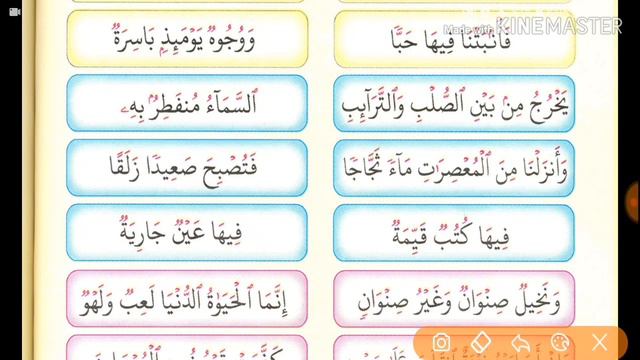 Made with KINEMASTER
فَأَنۢبَتْنَا فِيهَا حَبًّا
وَوُجُوهٌ يَوْمَئِذٍۭ بَاسِرَةٌ
يَخْرُجُ مِنۢ بَيْنِ ٱلصُّلْبِ وَٱلتَّرَآئِبِ
ٱلسَّمَآءُ مُنفَطِرٌۢ بِهِۦ
وَأَنزَلْنَا مِنَ ٱلْمُعْصِرَٰتِ مَآءً ثَجَّاجًا
فَتُصْبِحَ صَعِيدًا زَلَقًا
فِيهَا كُتُبٌ قَيِّمَةٌ
فِيهَا عَيْنٌ جَارِيَةٌ
وَنَخِيلٌ صِنْوَانٌ وَغَيْرُ صِنْوَانٍ
إِنَّمَا ٱلْحَيَوٰةُ ٱلدُّنْيَا لَعِبٌ وَلَهْوٌ